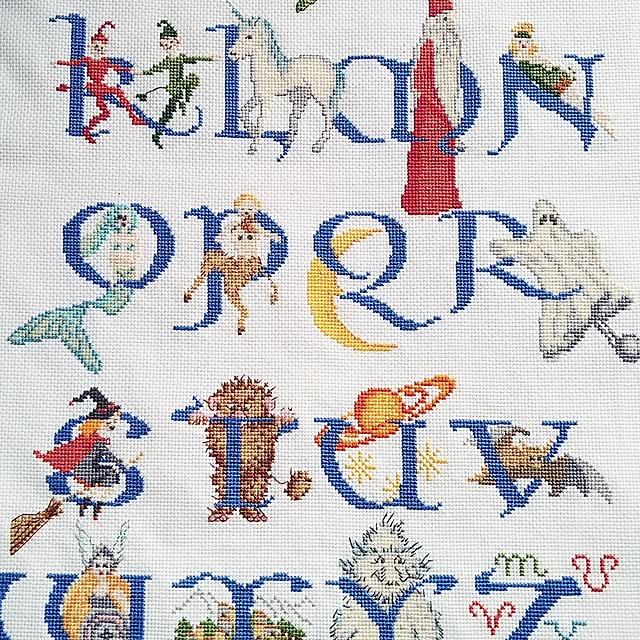 K L M N
O P Q R
S T U V
W X Y Z